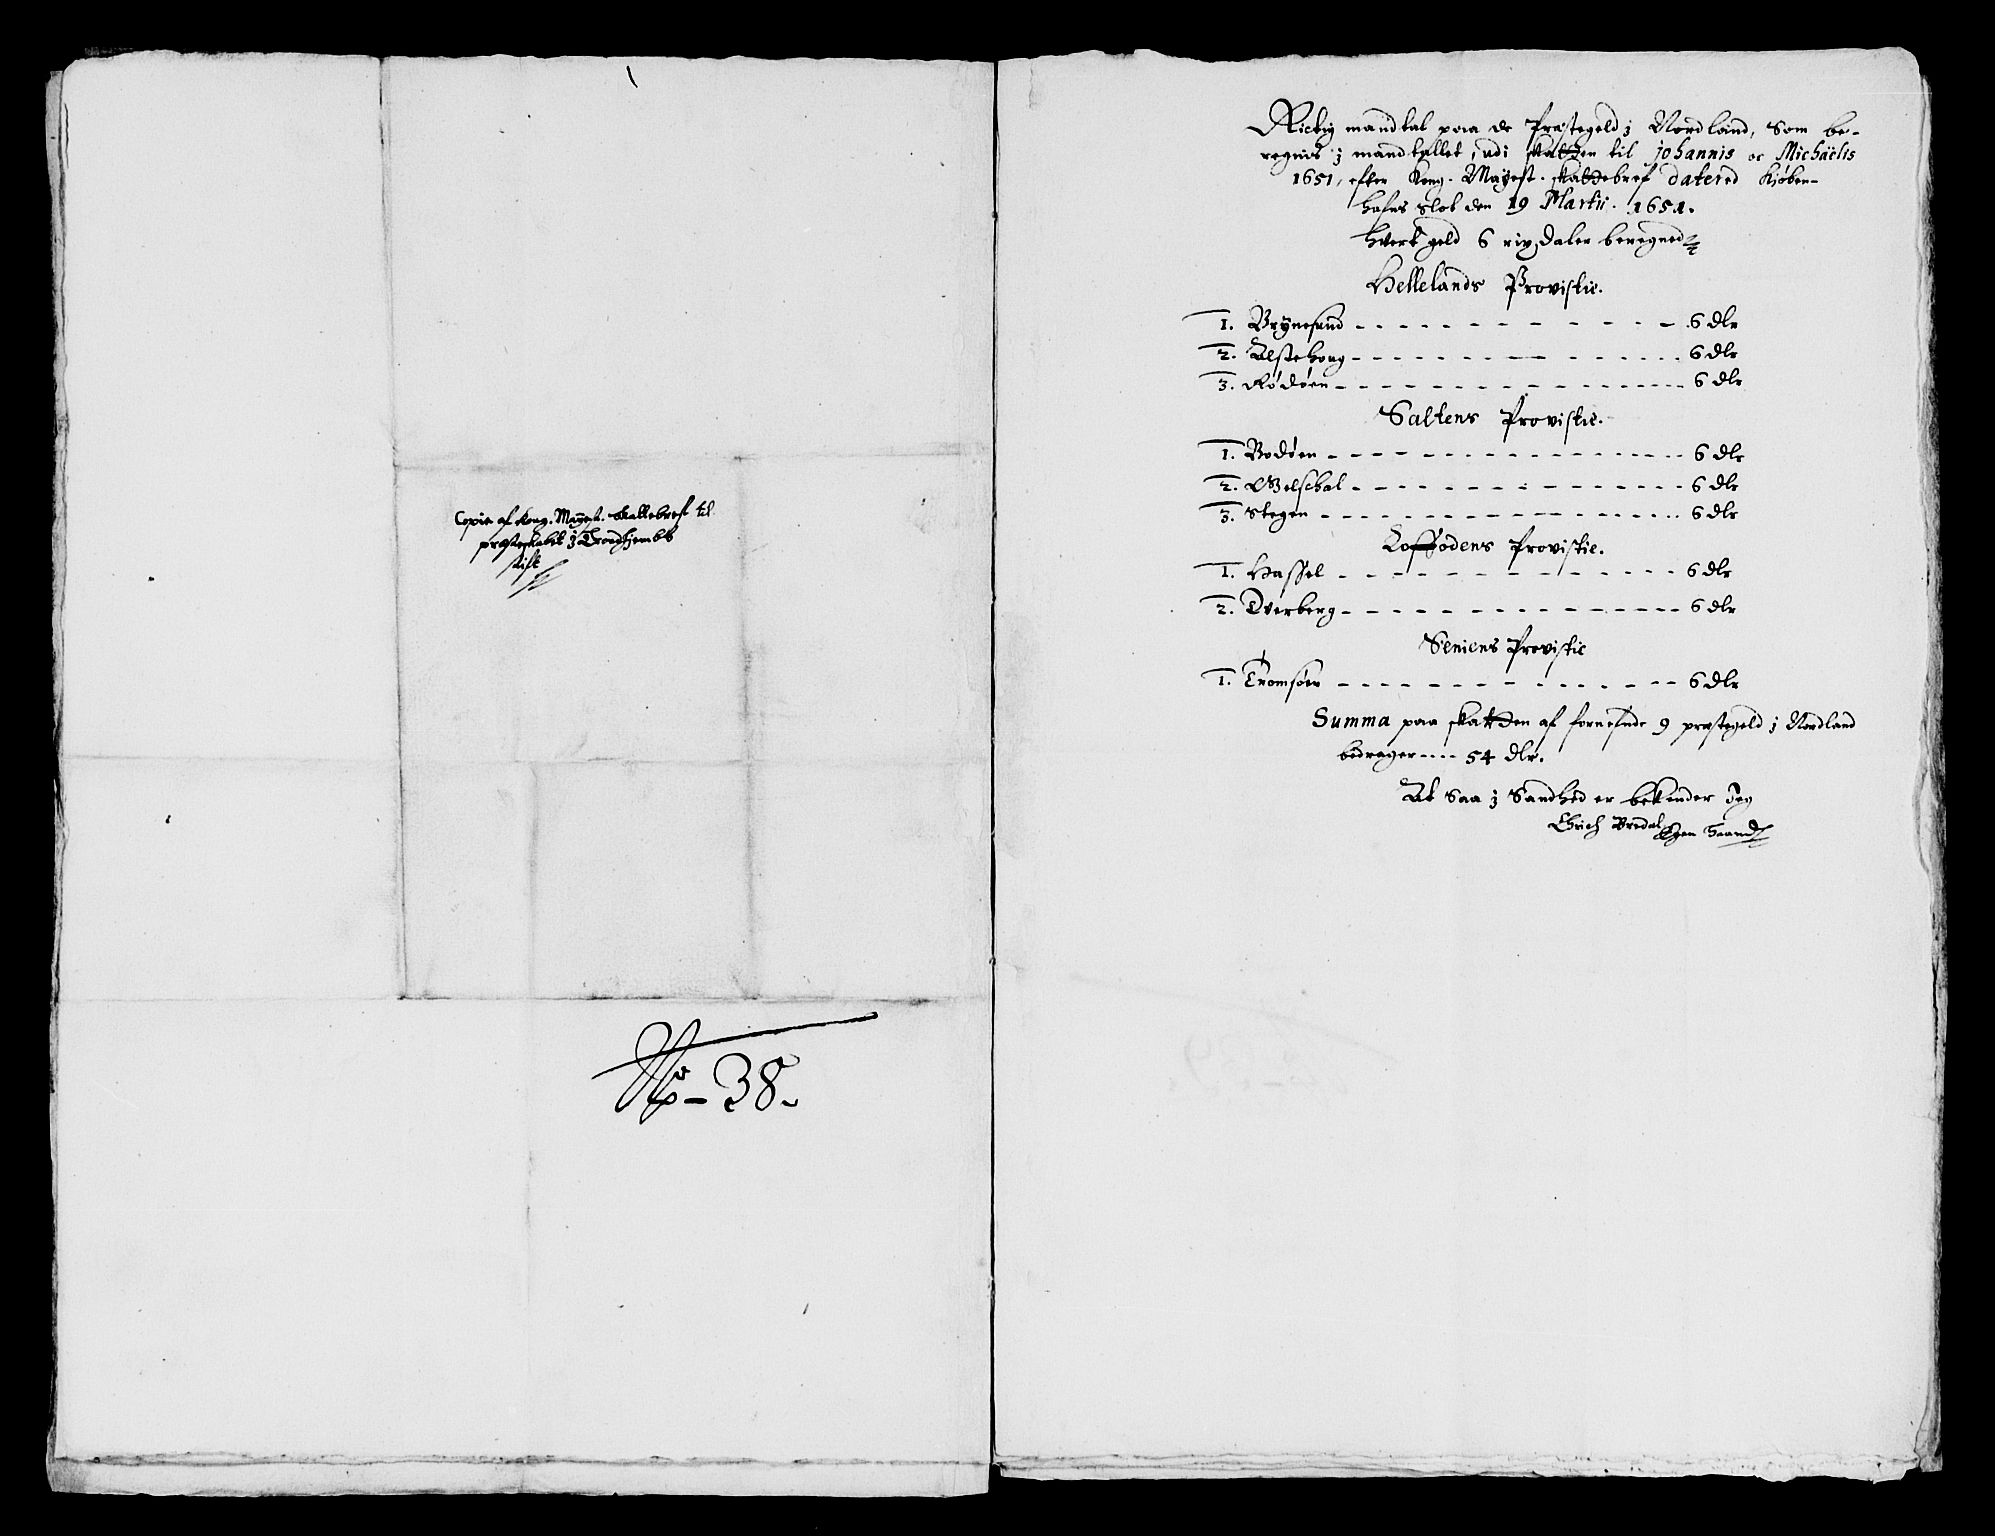 Copie af Kong. Mayest. skattebref til
præsteskabet j Trondhjembs
stift
No - 38.
Rictig mandtal paa de Præstegeld j Nordland, som be-
regnis j mandtallet, udi skatten til johannis oc Michaëlis
1651, efter Kong. Mayest. skattebref datered Kjøben-
hafns slot den 19 Martii. 1651.
hvert geld 6 rixdaler beregned
Hellelands Provistie.
1. Brÿnesund - - - 6 dlr
2. Alstehoug - - - 6 dlr
3. Rødøen - - - 6 dlr
Saltens Provistie.
1. Bodøen - - - 6 dlr
2. Gilschal - - - 6 dlr
3. Stegen - - - 6 dlr
Loffodens Provistie.
1. Hassel - - - 6 dlr
2. Dverberg - - - 6 dlr
Seniens Provistie
1. Tromsøen - - - 6 dlr
Summa paa skatten af fornefnde 9 præstegeld j Nordland
bedrager - - - 54 dlr.
At saa j Sandhed er bekinder Jeg
Erich Bredal Egen Haand